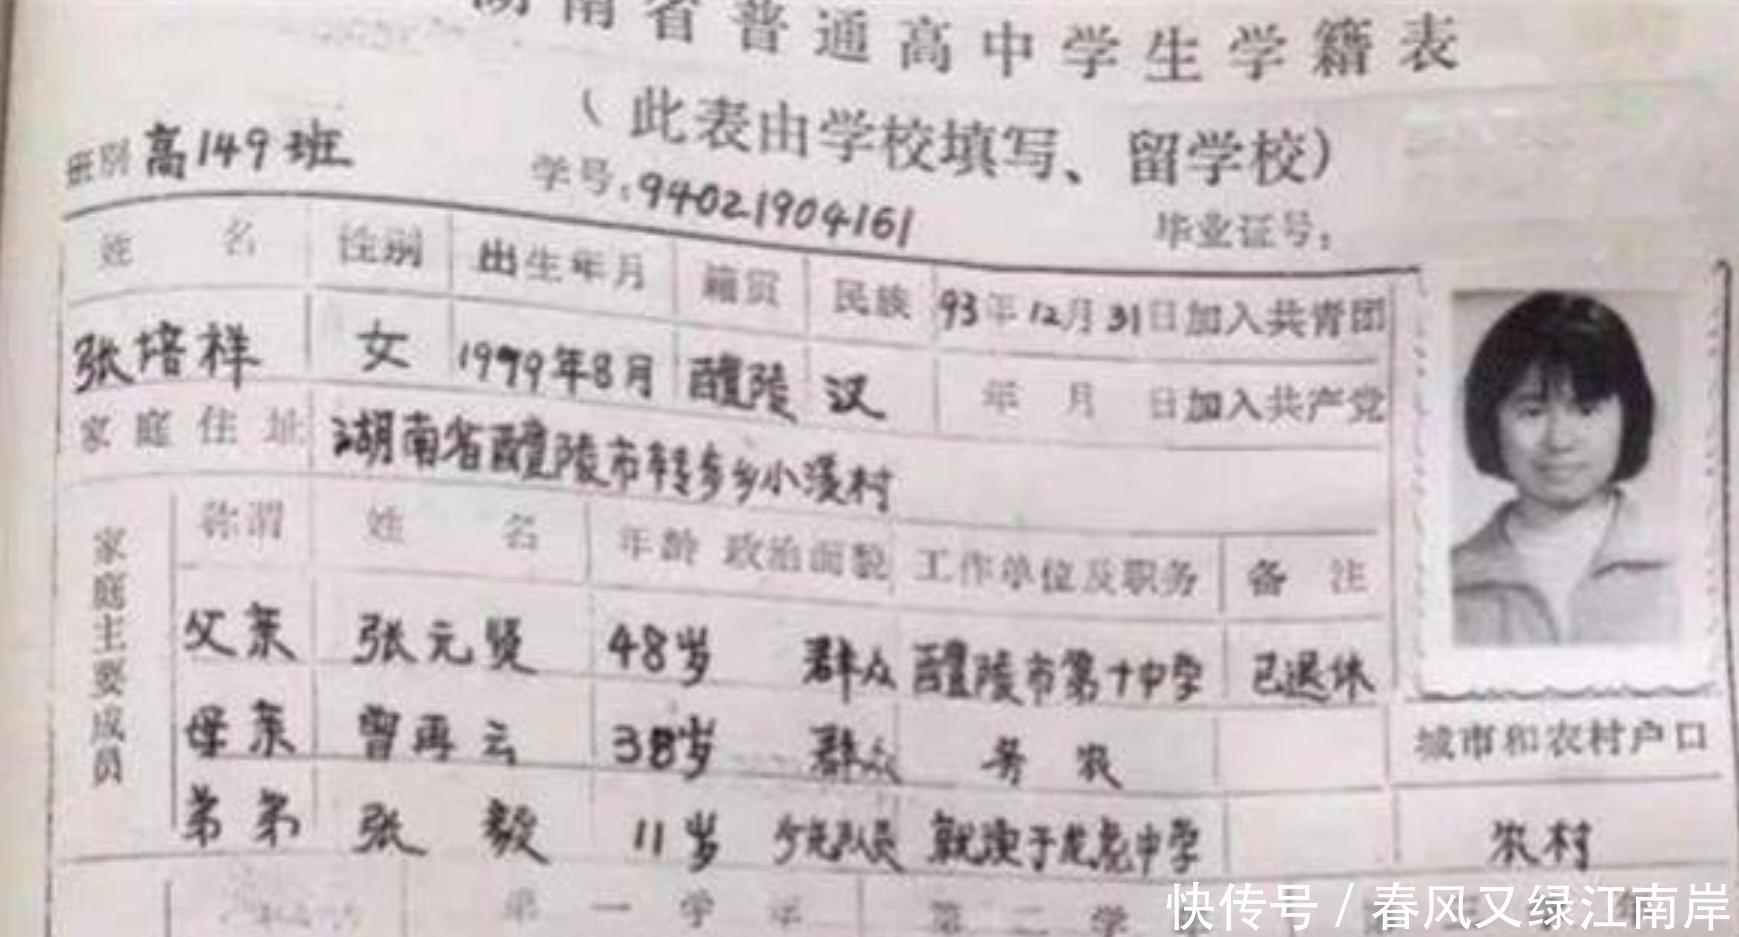 湖南省普通高中学生学籍表
(此表由学校填写、留学校)
班别 高149班 学号:94021904161 毕业证号:
姓名 性别 出生年月 籍贯 民族 93年12月31日加入共青团
张培祥 女 1979年8月 醴陵 汉 年 月 日加入共产党
家庭住址 湖南省醴陵市转步乡小溪村
家庭主要成员
称谓 姓名 年龄 政治面貌 工作单位及职务 备注
父亲 张元贤 48岁 群众 醴陵市第十中学 已退休
母亲 曾再云 38岁 群众 务农
弟弟 张毅 11岁 少先队员 就读于龙虎中学
城市和农村户口
农村
第一学年 第二学
快传号/春风又绿江南岸